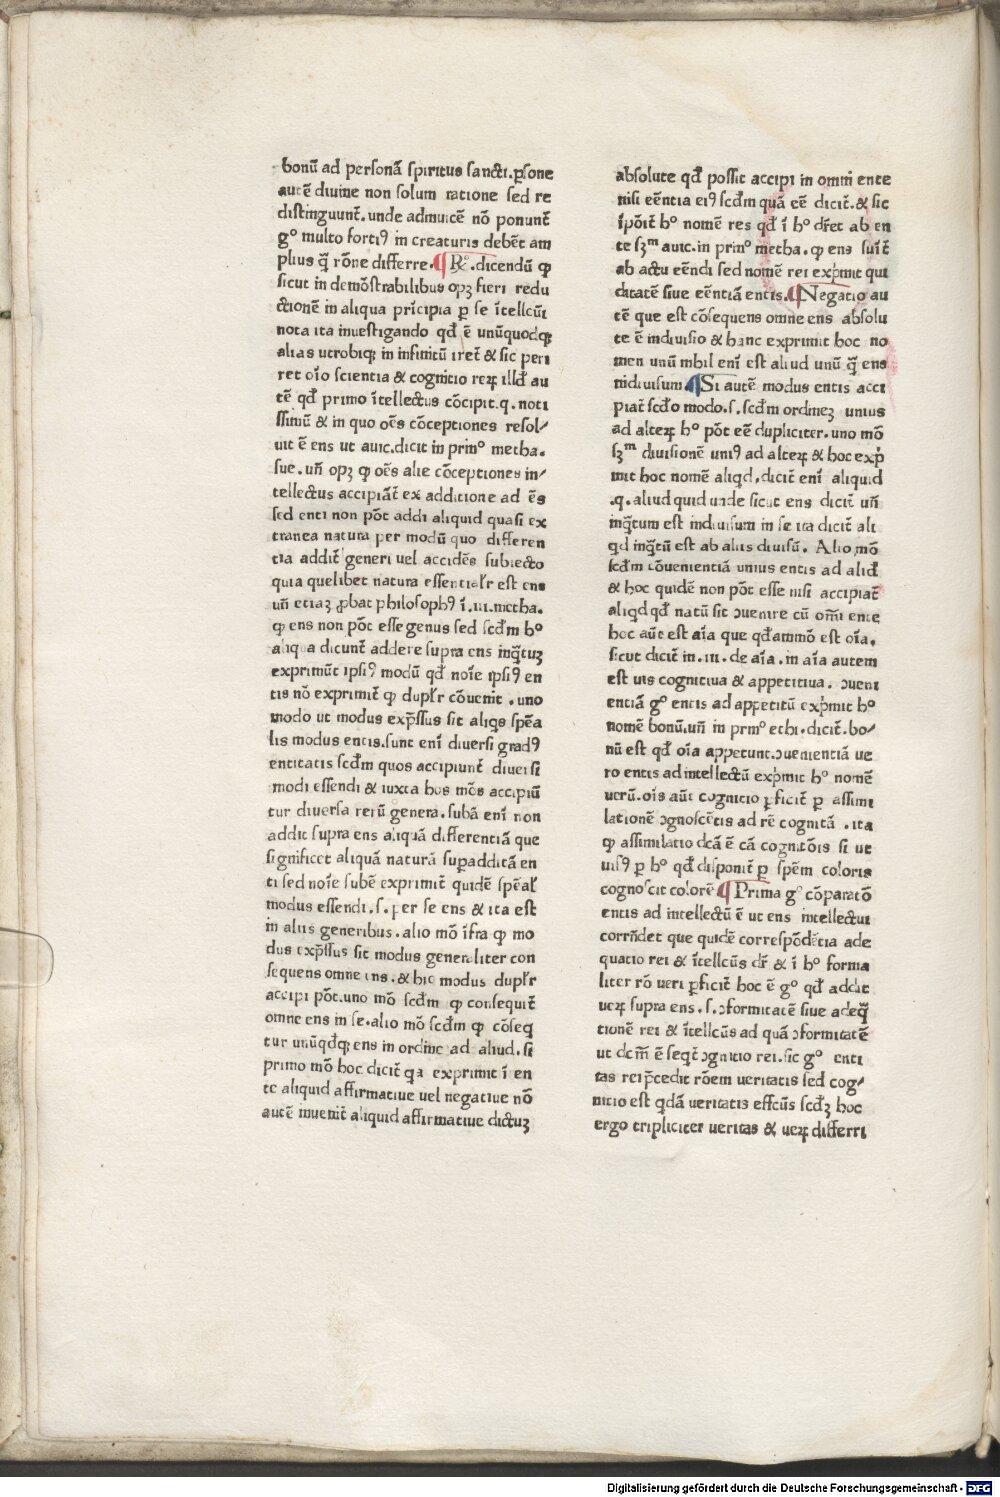 bonū ad personā spiritus sancti. ꝑsone
autē diuine non solum ratione sed re
distinguunt̄. unde adinuicē nō ponunt̄
gº multo fortiꝰ in creaturis debēt am
plius q̄ rōne differre. ¶ Rº. dicendū ꝙ
sicut in demōstrabilibus opꝫ fieri redu
ctionē in aliqua prīcipia ꝑ se ītellcūi
nota ita inuestigando qđ ē unūquodqꝫ
alias utrobiqꝫ in infinitū iret̄ & sic peri
ret oīo scientia & cognitio reꝝ illđ au
tē qđ primo ītellectus cōcipit. q. noti
ssimū & in quo oēs cōceptiones resol/
uit ē ens ut auic. dicit in prinº metha.
sue. uñ opꝫ ꝙ oēs alie cōceptiones in/
tellectus accipiāt̄ ex additione ad ēs
sed enti non pōt addi aliquid quasi ex
tranea natura per modū quo differen
tia addit̄ generi uel accidēs subiecto
quia quelibet natura essentialr̄ est ens
uñ etiaꝫ ꝓbat philosophꝰ ī. iii. metha.
ꝙ ens non pōt esse genus sed scđm hº
aliqua dicunt̄ addere supra ens inq̄tuꝫ
exprimūt ipsiꝰ modū qđ noīe ipsiꝰ en
tis nō exprimit̄ ꝙ duplr̄ cōuenit. uno
modo ut modus exp̄ssus sit aliqs spēa
lis modus entis. sunt enī diuersi gradꝰ
entitatis scđm quos accipiunt̄ diuersi
modi essendi & iuxta hos mōs accipiū
tur diuersa rerū genera. subā enī non
addit supra ens aliquā differentiā que
significet aliquā naturā suꝑadditā en
ti sed noīe subē exprimit̄ quidē spēał
modus essendi. s. per se ens & ita est
in aliis generibus. alio mō īfra ꝙ mo
dus exp̄ssus sit modus generaliter con
sequens omne ens. & hic modus duplr̄
accipi pōt. uno mō scđm ꝙ consequit̄
omne ens in se. alio mō scđm ꝙ cōseq
tur unūqđqꝫ ens in ordine ad aliud. si
primo mō hoc dicit̄ qa exprimit ī en
te aliquid affirmatiue uel negatiue nō
autē inuenit̄ aliquid affirmatiue dictuꝫ
absolute qđ possit accipi in omni ente
nisi eēntia eiꝰ scđm quā eē dicit̄. & sic
īpōit̄ hº nomē res qđ ī hº dr̄et ab en
te sꝫᵐ auic. in prinº metha. ꝙ ens suīt̄
ab actu eēndi sed nomē rei exp̍mit qui
ditatē siue eēntiā entis. ¶ Negatio au
tē que est cōsequens omne ens absolu
te ē indiuisio & hanc exprimit hoc no
men unū nihil enī est aliud unū q̄ ens
indiuisum. ¶ Si autē modus entis acci
piat̄ scđo modo. s. scđm ordineꝫ unius
ad alteꝝ hº pōt eē dupliciter. uno mō
sꝫᵐ diuisionē uniꝰ ad alteꝝ & hoc exp̍
mit hoc nomē aliqđ. dicit̄ enī aliquid
.q. aliud quid unde sicut ens dicit̄ uñ
inq̄tum est indiuisum in se ita dicit̄ ali
qđ inq̄tū est ab aliis diuisū. Alio mō
scđm cōuenientiā unius entis ad aliđ
& hoc quidē non pōt esse nisi accipiat̄
aliqđ qđ natū sit ɔuenire cū om̄i ente
hoc aūt est aīa que qđāmō est oīa.
sicut dicit̄ in. iii. de aīa. in aīa autem
est uis cognitiua & appetitiua. ɔueni
entiā gº entis ad appetitū exp̍mit hº
nomē bonū. uñ in prinº ethi. dicit̄. bo/
nū est qđ oīa appetunt. ɔuenientiā ue
ro entis ad intellectū exp̍mit hº nomē
uerū. oīs aūt cognitio ꝑficit̄ ꝑ assimi
lationē ɔgnoscētis ad rē cognitā. ita
ꝙ assimilatio dc̄ā ē cā cognitōis si ut
uisꝰ ꝑ hº qđ disponit̄ ꝑ spēm coloris
cognoscit colorē ¶ Prima gº cōparatō
entis ad intellectū ē ut ens intellectui
corrn̄det que quidē correspōdētia ade
quatio rei & ītellcūs dr̄ & ī hº forma
liter rō ueri ꝑficit̄ hoc ē gº qđ addit
ueꝝ supra ens. s. ɔformitatē siue adeq̄
tionē rei & ītellcūs ad quā ɔformitatē
ut dcm̄ ē seqt̄ ɔgnitio rei. sic gº enti
tas rei p̄cedit rōem ueritatis sed cog/
nitio est qđā ueritatis effcūs scđꝫ hoc
ergo tripliciter ueritas & ueꝝ differri
Digitalisierung gefördert durch die Deutsche Forschungsgemeinschaft - DFG